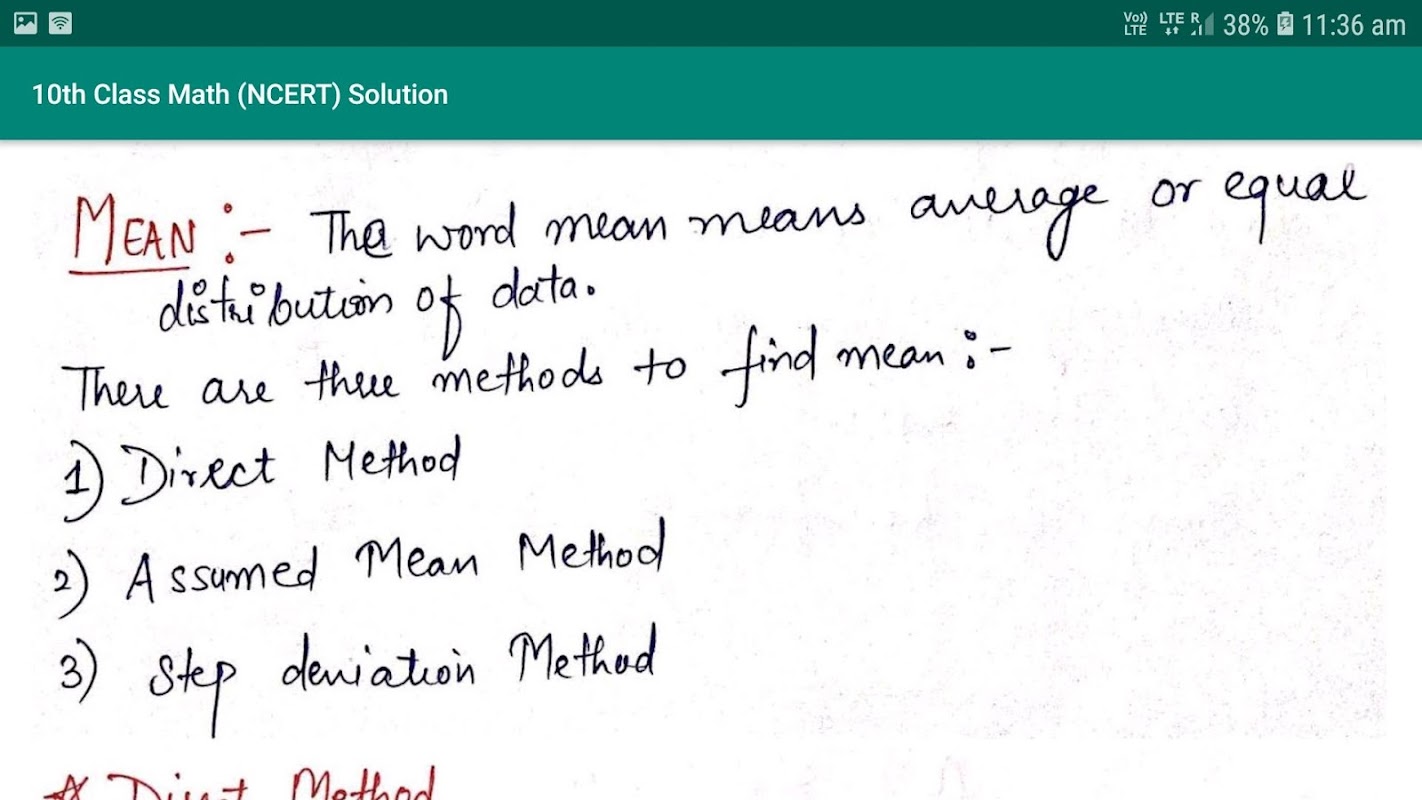 Vo)) LTE LTE R 38% 11:36 am
10th Class Math (NCERT) Solution
MEAN :- The word mean means average or equal
distribution of data.
There are three methods to find mean :-
1) Direct Method
2) Assumed Mean Method
3) Step deviation Method
Direct Method